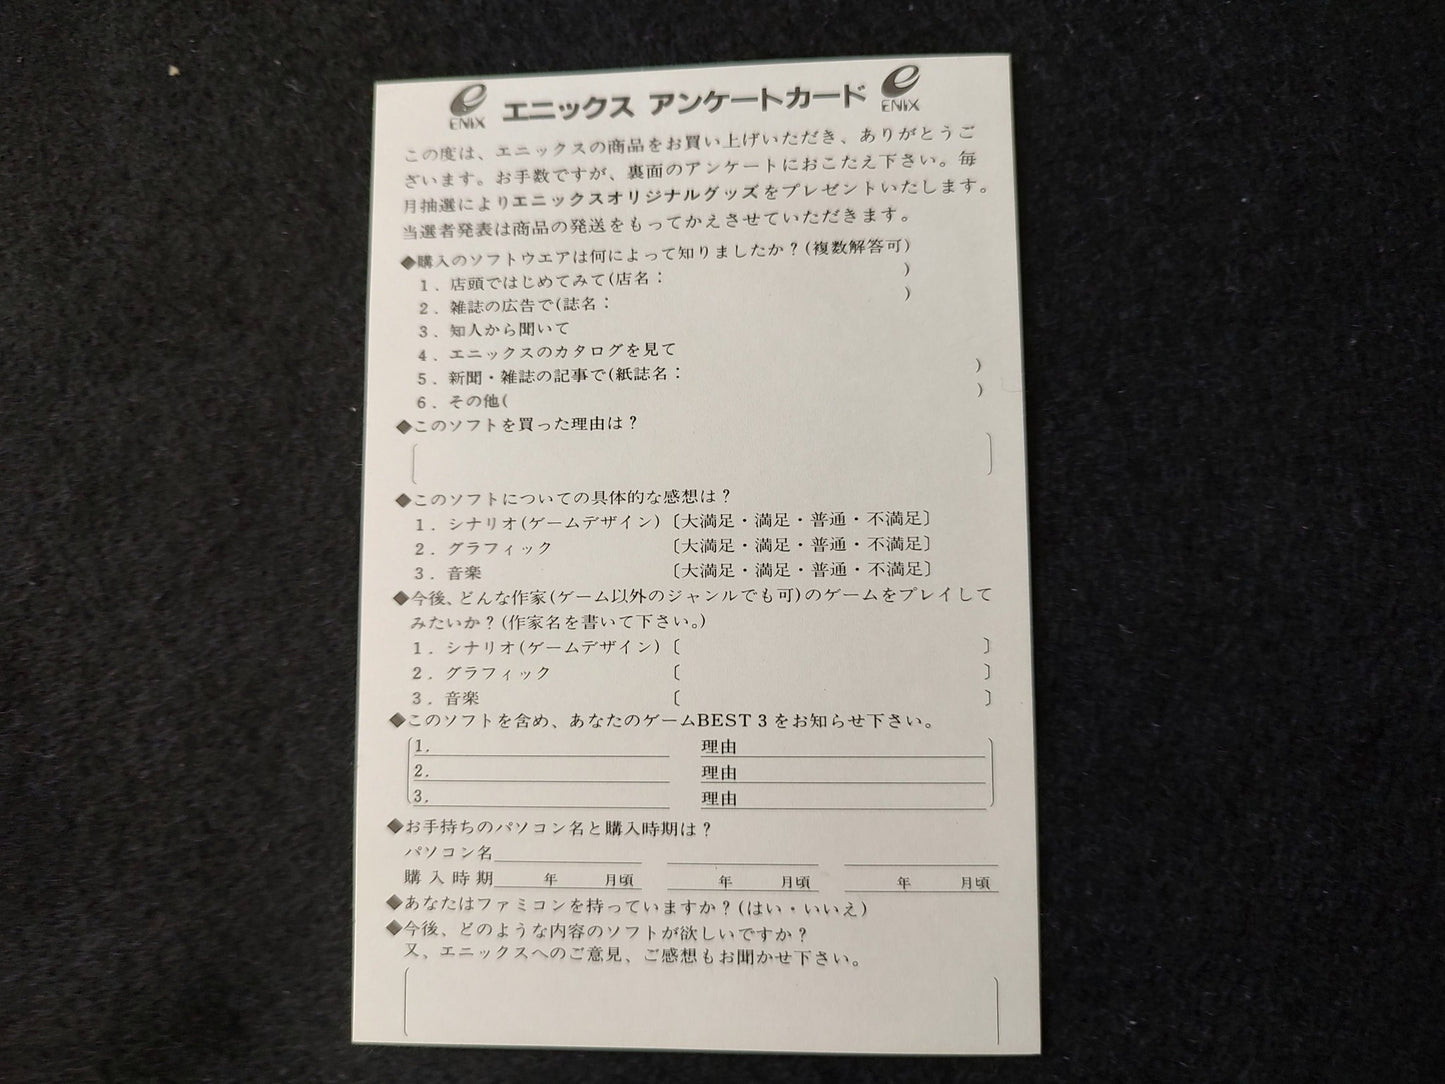 ENIX エニックス アンケートカード ENIX
この度は、エニックスの商品をお買い上げいただき、ありがとうご
ざいます。お手数ですが、裏面のアンケートにおこたえ下さい。毎
月抽選によりエニックスオリジナルグッズをプレゼントいたします。
当選者発表は商品の発送をもってかえさせていただきます。
◆購入のソフトウエアは何によって知りましたか？(複数解答可)
1．店頭ではじめてみて(店名： )
2．雑誌の広告で(誌名： )
3．知人から聞いて
4．エニックスのカタログを見て
5．新聞・雑誌の記事で(紙誌名： )
6．その他( )
◆このソフトを買った理由は？
◆このソフトについての具体的な感想は？
1．シナリオ(ゲームデザイン)〔大満足・満足・普通・不満足〕
2．グラフィック 〔大満足・満足・普通・不満足〕
3．音楽 〔大満足・満足・普通・不満足〕
◆今後、どんな作家(ゲーム以外のジャンルでも可)のゲームをプレイして
みたいか？(作家名を書いて下さい。)
1．シナリオ(ゲームデザイン)〔 〕
2．グラフィック 〔 〕
3．音楽 〔 〕
◆このソフトを含め、あなたのゲームBEST３をお知らせ下さい。
1. 理由
2. 理由
3. 理由
◆お手持ちのパソコン名と購入時期は？
パソコン名
購入時期 年 月頃 年 月頃 年 月頃
◆あなたはファミコンを持っていますか？(はい・いいえ)
◆今後、どのような内容のソフトが欲しいですか？
又、エニックスへのご意見、ご感想もお聞かせ下さい。